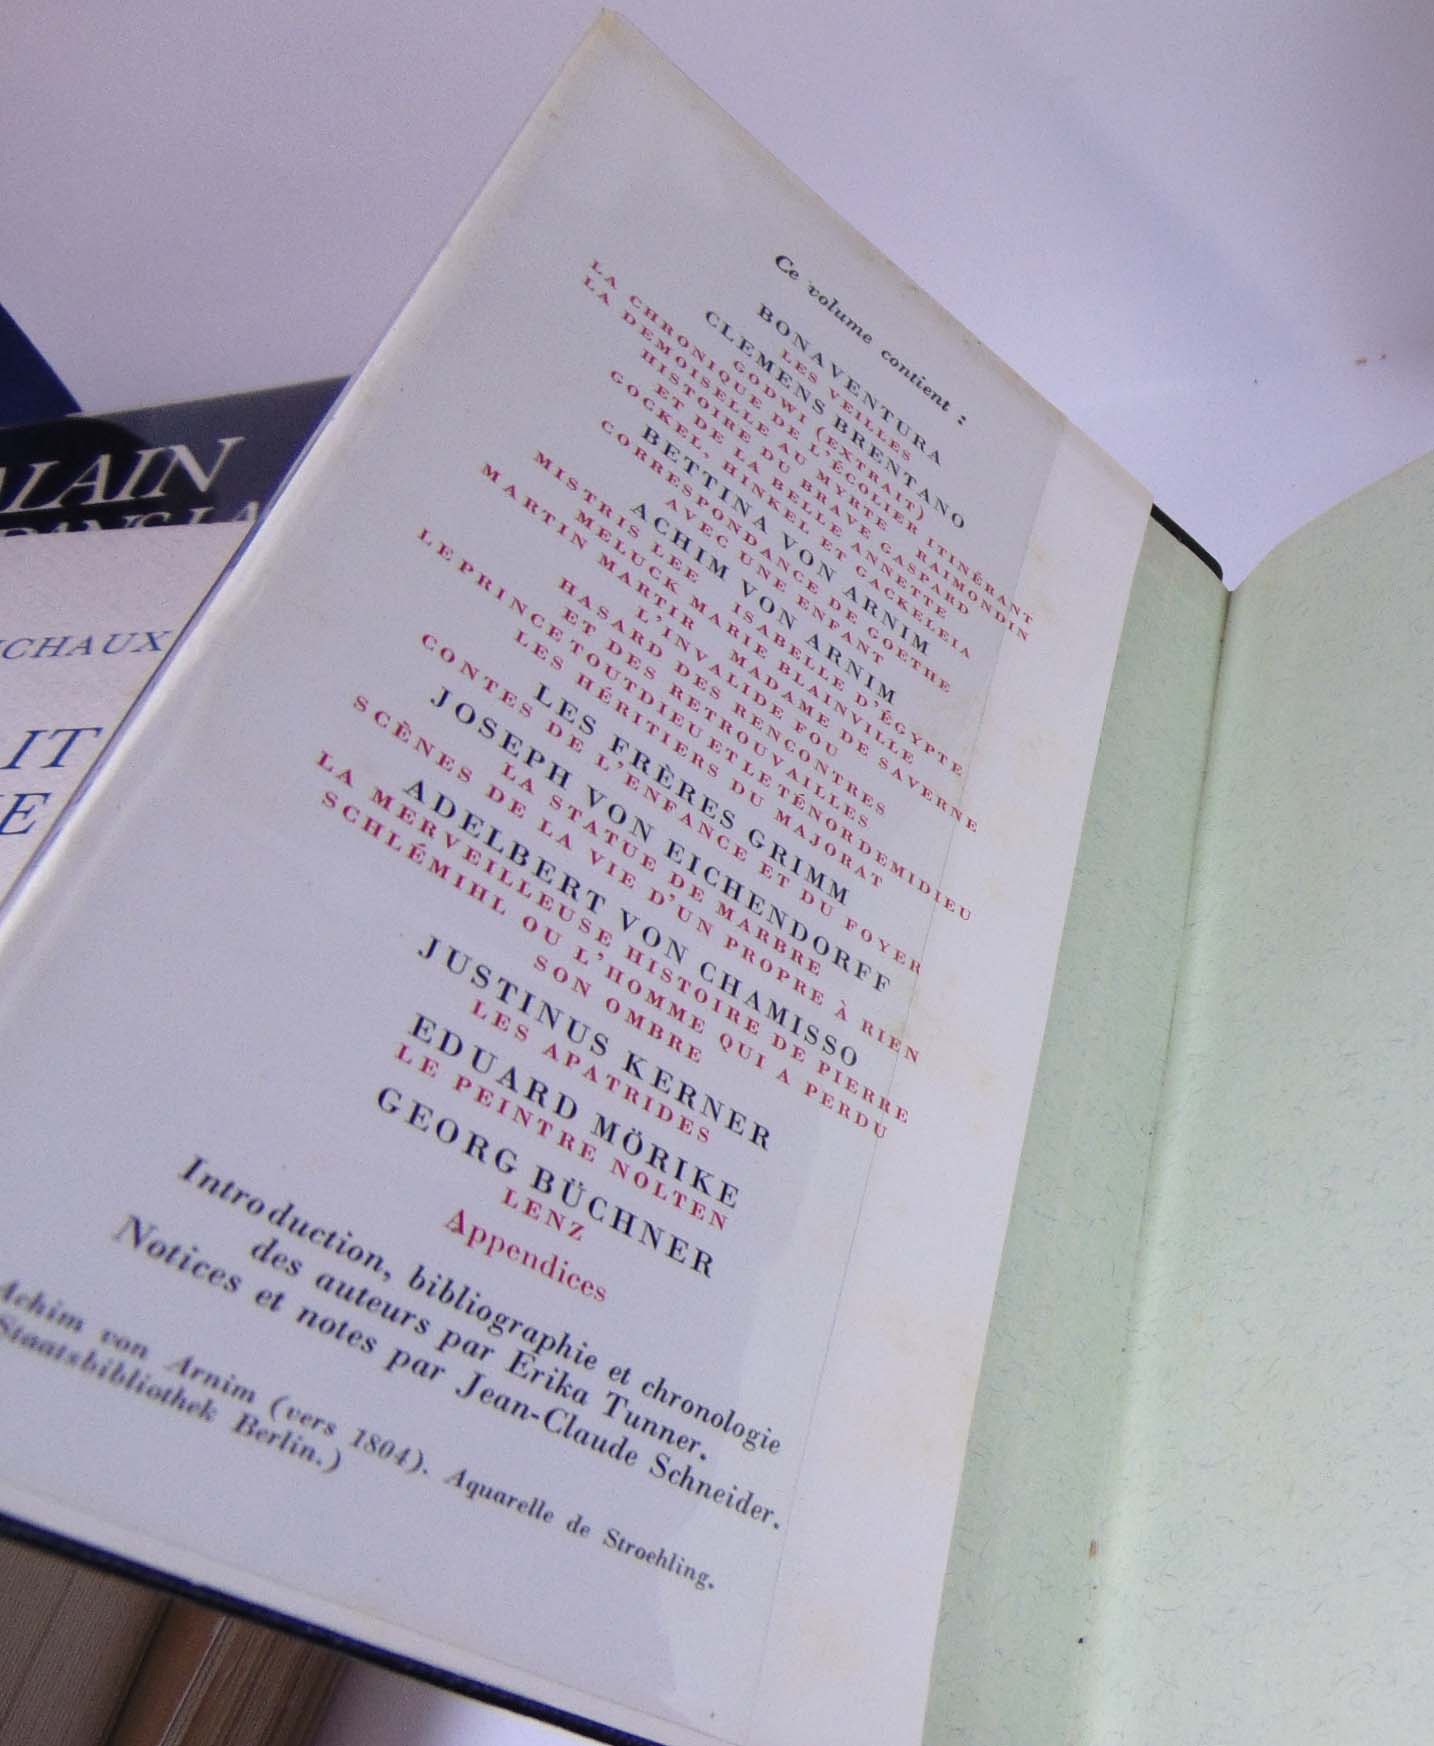 Ce volume contient :
BONAVENTURA
LES VEILLES
CLEMENS BRENTANO
GODWI (EXTRAIT)
LA CHRONIQUE DE L'ÉCOLIER ITINÉRANT
LA DEMOISELLE AU MYRTE RAIMONDIN
HISTOIRE DU BRAVE GASPARD
ET DE LA BELLE ANNETTE
GOCKEL, HINKEL ET GACKELEIA
BETTINA VON ARNIM
CORRESPONDANCE DE GOETHE
AVEC UNE ENFANT
ACHIM VON ARNIM
MISTRIS LEE ISABELLE D'ÉGYPTE
MELUCK MARIE BLAINVILLE
MARTIN MARTIR MADAME DE SAVERNE
L'INVALIDE FOU
HASARD DES RENCONTRES
ET DES RETROUVAILLES
LE PRINCE TOUTDIEU ET LE TÉNOR DEMIDIEU
LES HÉRITIERS DU MAJORAT
LES FRÈRES GRIMM
CONTES DE L'ENFANCE ET DU FOYER
JOSEPH VON EICHENDORFF
LA STATUE DE MARBRE
SCÈNES DE LA VIE D'UN PROPRE À RIEN
ADELBERT VON CHAMISSO
LA MERVEILLEUSE HISTOIRE DE PIERRE
SCHLÉMIHL OU L'HOMME QUI A PERDU
SON OMBRE
JUSTINUS KERNER
LES APATRIDES
EDUARD MÖRIKE
LE PEINTRE NOLTEN
GEORG BÜCHNER
LENZ
Appendices
Introduction, bibliographie et chronologie
des auteurs par Erika Tunner.
Notices et notes par Jean-Claude Schneider.
Achim von Arnim (vers 1804). Aquarelle de Stroehling.
Staatsbibliothek Berlin.)
ALAIN